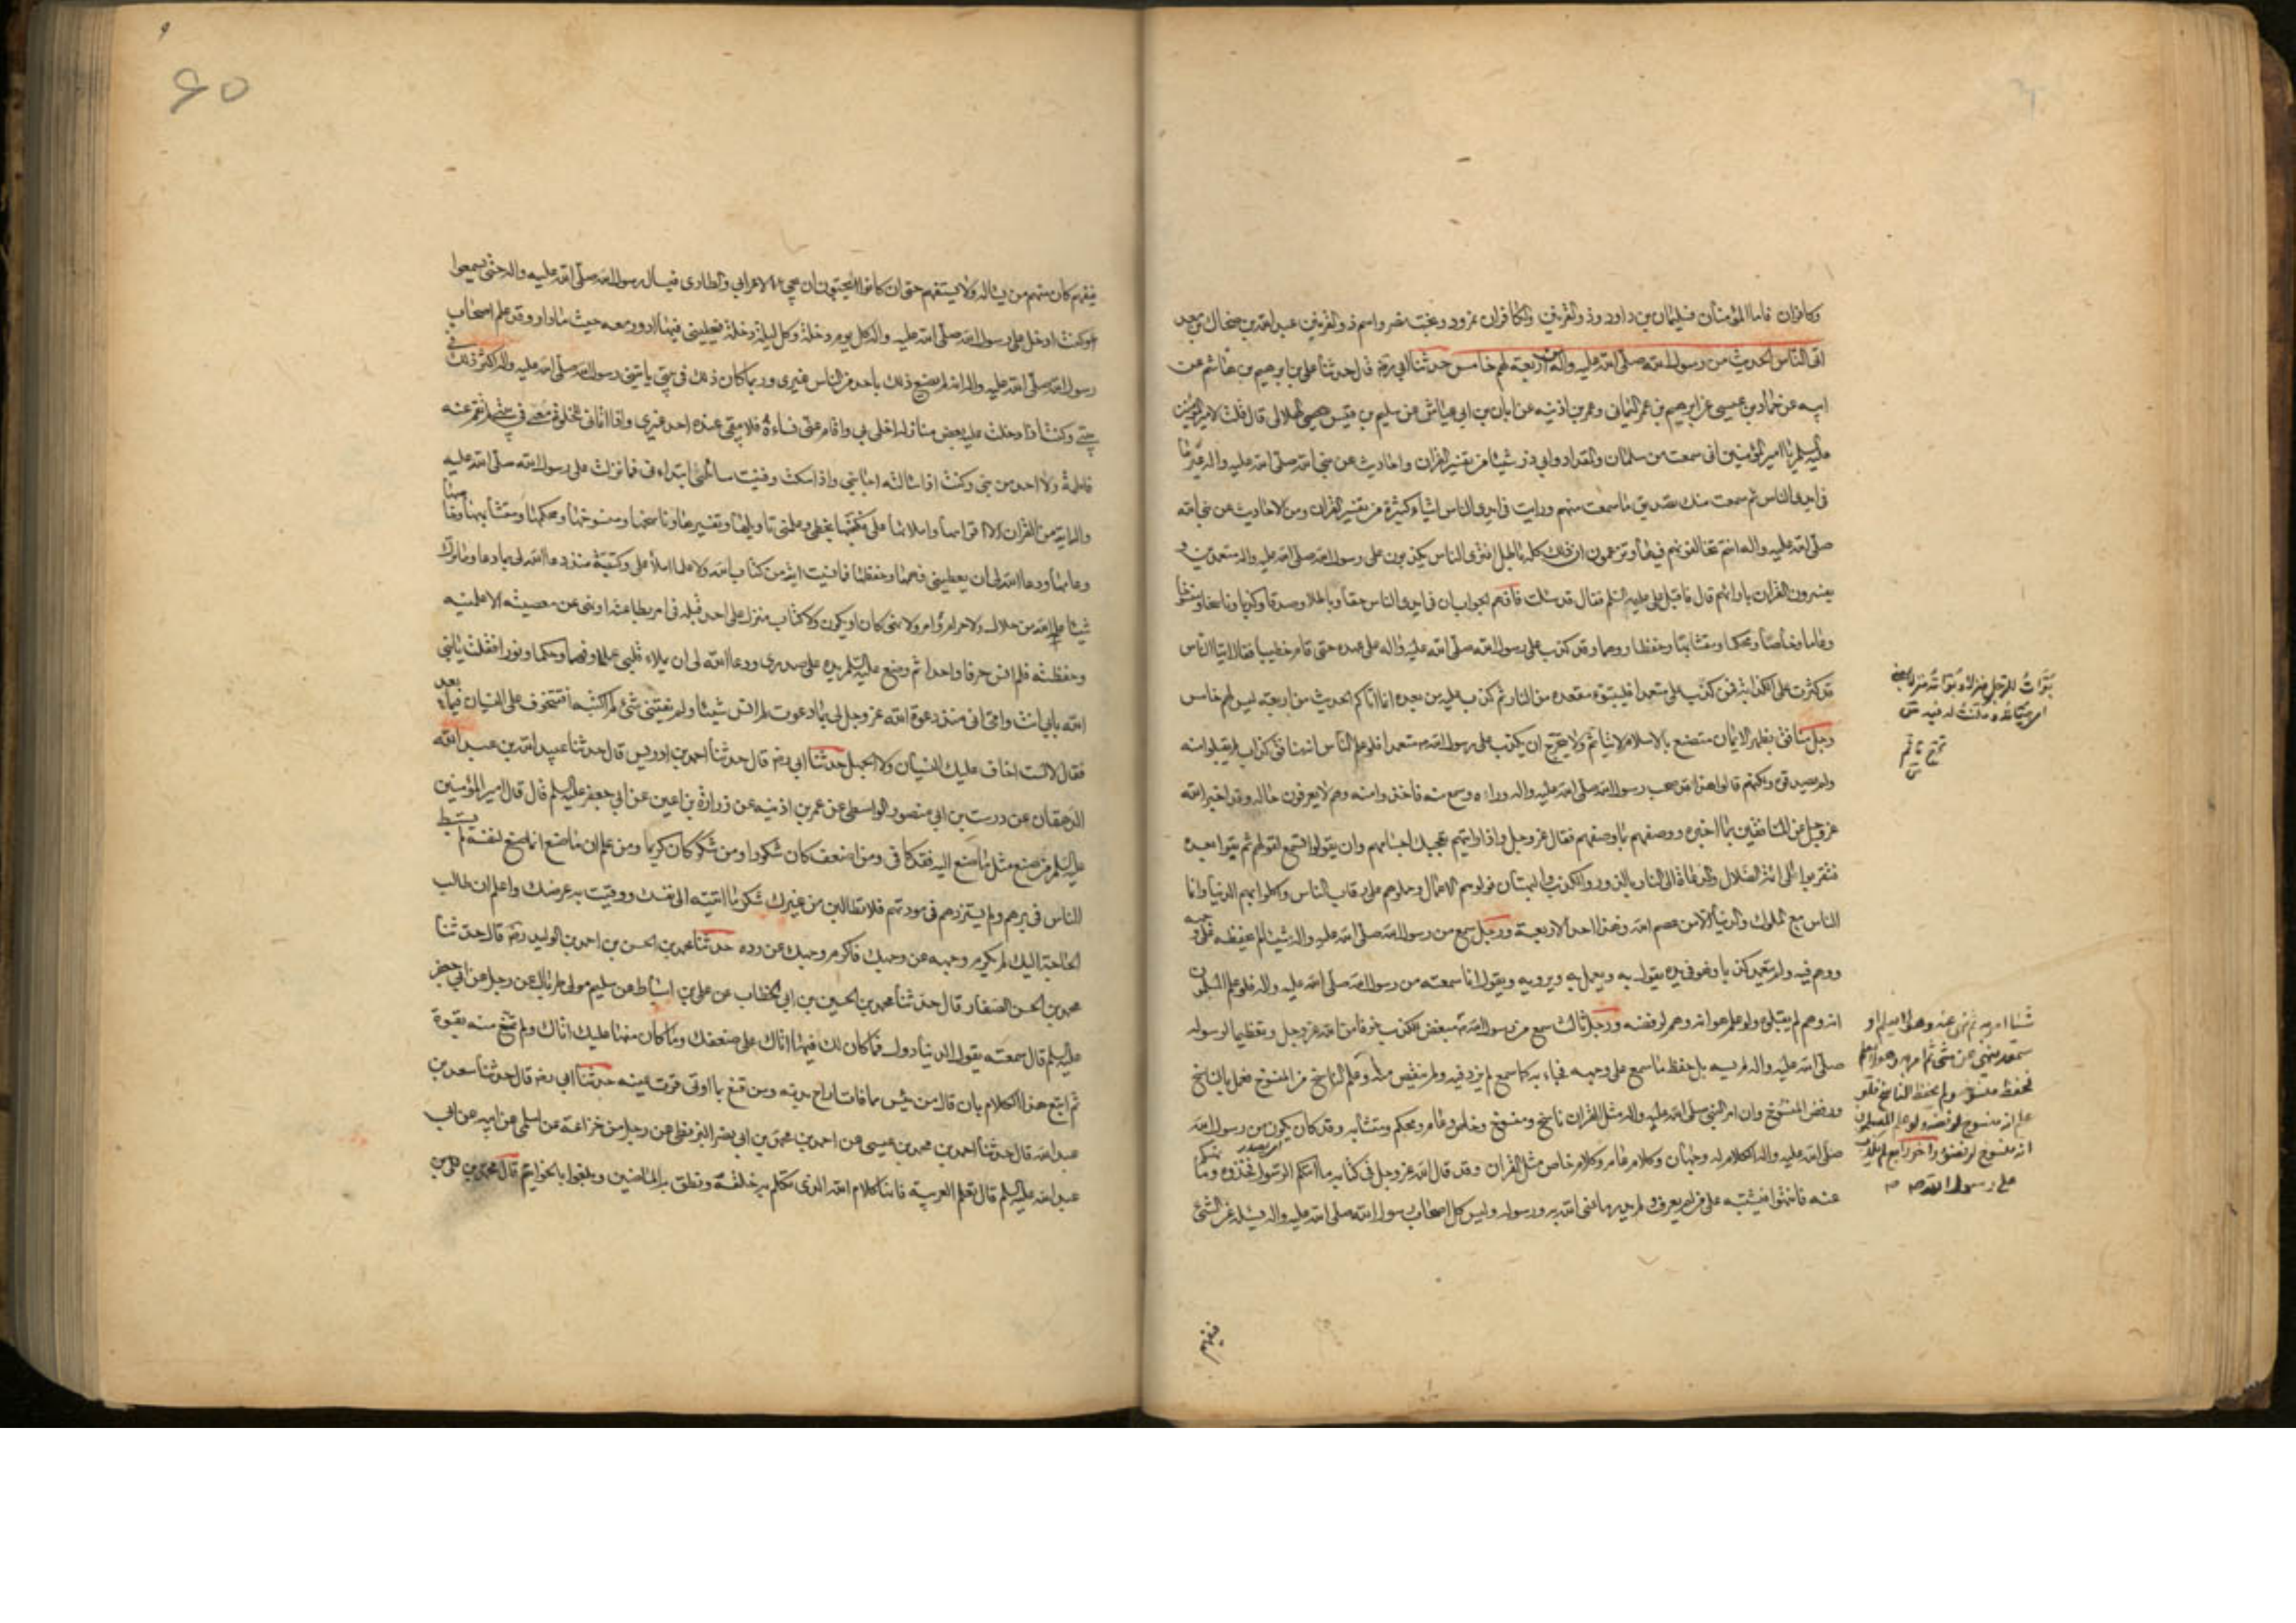 وكافران فاما المؤمنان فسليمان بن داود وذو القرنين والكافران نمرود وبخت نصر واسم ذو القرنين عبد الله بن ضحاك بن معد
اتى الناس الحديث من رسول الله صلى الله عليه واله من اربعة لهم خامس حدثنا ابي رضه قال حدثنا علي بن ابرهيم بن هاشم عن
ابيه عن حماد بن عيسى عن ابرهيم بن عمر اليماني وعمر بن اذنيه عن ابان بن ابي عياش عن سليم بن قيس الهلالي قال قلت لامير المؤمنين
عليه السلم يا امير المؤمنين اني سمعت من سلمان والمقداد وابي ذر شيئا من تفسير القران واحاديث عن نبي الله صلى الله عليه واله غير ما
في ايدي الناس ثم سمعت منك تصديق ما سمعت منهم ورايت في ايدي الناس اشياء كثيرة من تفسير القران ومن الاحاديث عن نبي الله
صلى الله عليه واله انتم تخالفونهم فيها وتزعمون ان ذلك كله باطل افترى الناس يكذبون على رسول الله صلى الله عليه واله متعمدين و
يفسرون القران بارائهم قال فاقبل علي عليه السلم فقال قد سئلت فافهم الجواب ان في ايدي الناس حقا وباطلا وصدقا وكذبا وناسخا ومنسوخا
وعاما وخاصا ومحكما ومتشابها وحفظا ووهما وقد كذب على رسول الله صلى الله عليه واله على عهده حتى قام خطيبا فقال ايها الناس
قد كثرت علي الكذابة فمن كذب علي متعمدا فليتبوء مقعده من النار ثم كذب عليه من بعده انما اتاكم الحديث من اربعة ليس لهم خامس
رجل منافق يظهر الايمان متصنع بالاسلام لا يتاثم ولا يتحرج ان يكذب على رسول الله ص متعمدا فلو علم الناس انه منافق كذاب لم يقبلوا منه
ولم يصدقوه ولكنهم قالوا هذا قد صحب رسول الله صلى الله عليه واله وراه وسمع منه فاخذوا منه وهم لا يعرفون حاله وقد اخبر الله
عز وجل عن المنافقين بما اخبره ووصفهم بما وصفهم فقال عز وجل واذا رايتهم تعجبك اجسامهم وان يقولوا تسمع لقولهم ثم بقوا بعده
فتقربوا الى ائمة الضلال والدعاة الى النار بالزور والكذب والبهتان فولوهم الاعمال وحملوهم على رقاب الناس واكلوا بهم الدنيا وانما
الناس مع الملوك والدنيا الا من عصم الله وهذا احد الاربعة ورجل سمع من رسول الله صلى الله عليه واله شيئا لم يحفظه على وجهه
ووهم فيه ولم يتعمد كذبا وهو في يده يقول به ويعمل به ويرويه ويقول انا سمعته من رسول الله صلى الله عليه واله فلو علم المسلمون
انه وهم لم يقبلوه ولو علم هو انه وهم لرفضه ورجل ثالث سمع من رسول الله ص مبغض للكذب خوفا من الله عز وجل وتعظيما لرسوله
صلى الله عليه واله لم يسه بل حفظ ما سمع على وجهه فجاء به كما سمع لم يزد فيه ولم ينقص منه وعلم الناسخ من المنسوخ فعمل بالناسخ
ورفض المنسوخ وان امر النبي صلى الله عليه واله مثل القران ناسخ ومنسوخ وخاص وعام ومحكم ومتشابه وقد كان يكون من رسول الله
صلى الله عليه واله الكلام له وجهان وكلام عام وكلام خاص مثل القران وقد قال الله عز وجل في كتابه ما اتيكم الرسول فخذوه وما نهيكم
عنه فانتهوا فيشتبه على من لم يعرف ولم يدر ما عنى الله به ورسوله وليس كل اصحاب رسول الله صلى الله عليه واله يسئله عن الشئ
فيفهم
بوات للرجل منزلا وبواته منزلا بمعنى
اي هياته ومكنت له فيه ص
تحرج تاثم
ص
شيئا امر به ثم نهى عنه وهو لا يعلم او
سمعه ينهى عن شئ ثم امر به وهو لا يعلم
فحفظ منسوخه ولم يحفظ الناسخ فلو
علم انه منسوخ لرفضه ولو علم المسلمون
انه منسوخ لرفضوه واخر رابع لم يكذب
على رسول الله ص
۶۵
فيفهم كان منهم من يساله ولا يستفهم حتى ان كانوا ليحبون ان يجئ الاعرابي والطاري فيسال رسول الله صلى الله عليه واله حتى يسمعوا
وكنت ادخل على رسول الله صلى الله عليه واله كل يوم دخلة وكل ليلة دخلة فيخليني فيها ادور معه حيث ما دار وقد علم اصحاب
رسول الله صلى الله عليه واله انه لم يصنع ذلك باحد من الناس غيري وربما كان ذلك في بيتي ياتيني رسول الله صلى الله عليه واله اكثر ذلك في
بيتي وكنت اذا دخلت عليه بعض منازله اخلاني واقام عني نساءه فلا يبقى عنده احد غيري واذا اتاني للخلوة معي في بيتي لم تقم عنه
فاطمة ولا احد من بني وكنت اذا سالته اجابني واذا سكت وفنيت مسائلي ابتداني فما نزلت على رسول الله صلى الله عليه
واله اية من القران الا اقرانيها واملاها علي فكتبتها بخطي وعلمني تاويلها وتفسيرها وناسخها ومنسوخها ومحكمها ومتشابهها وخاصها
وعامها ودعا الله لي ان يعطيني فهمها وحفظها فما نسيت اية من كتاب الله ولا علما املاه علي وكتبته منذ دعا الله لي بما دعا وما ترك
شيئا علمه الله من حلال ولا حرام ولا امر ولا نهي كان او يكون ولا كتاب منزل على احد قبله في امر بطاعة او نهي عن معصية الا علمنيه
وحفظته فلم انس حرفا واحدا ثم وضع عليه السلم يده على صدري ودعا الله لي ان يملاء قلبي علما وفهما وحكما ونورا فقلت يا نبي
الله بابي انت وامي اني منذ دعوت الله عز وجل لي بما دعوت لم انس شيئا ولم يفتني شئ لم اكتبه افتتخوف علي النسيان فيما بعد
فقال لا لست اخاف عليك النسيان ولا الجهل حدثنا ابي رضه قال حدثنا احمد بن ادريس قال حدثنا عبيد الله بن عبد الله
الدهقان عن درست بن ابي منصور الواسطي عن عمر بن اذنيه عن زرارة بن اعين عن ابي جعفر عليه السلم قال قال امير المؤمنين
عليه السلم من صنع مثل ما صنع اليه فقد كافى ومن اضعف كان شكورا ومن شكر كان كريما ومن علم ان ما صنع انما صنع لنفسه لم يستبط
الناس في برهم ولم يستزدهم في مودتهم فلا تطالبن من غيرك شكر ما اتيته الى نفسك ووقيت به عرضك واعلم ان طالب
الحاجة اليك لم يكرم وجهه عن وجهك فاكرم وجهك عن رده حدثنا محمد بن الحسن بن احمد بن الوليد رضه قال حدثنا
محمد بن الحسن الصفار قال حدثنا محمد بن الحسين بن ابي الخطاب عن علي بن اسباط عن سليم مولى طربال عن رجل عن ابي جعفر
عليه السلم قال سمعته يقول الدنيا دول فما كان لك فيها اتاك على ضعفك وما كان منها عليك اتاك ولم تمتنع منه بقوة
ثم اتبع هذا الكلام بان قال من يئس مما فات اراح بدنه ومن قنع بما اوتي قرت عينه حدثنا ابي رضه قال حدثنا سعد بن
عبد الله قال حدثنا احمد بن محمد بن عيسى عن احمد بن محمد بن ابي نصر البزنطي عن رجل من خزاعة عن اسلمي عن ابيه عن ابي
عبد الله عليه السلم قال تعلموا العربية فانها كلام الله الذي تكلم به خلقه ونطق به الماضين وبلغوا بالخواتيم قال محمد بن علي بن